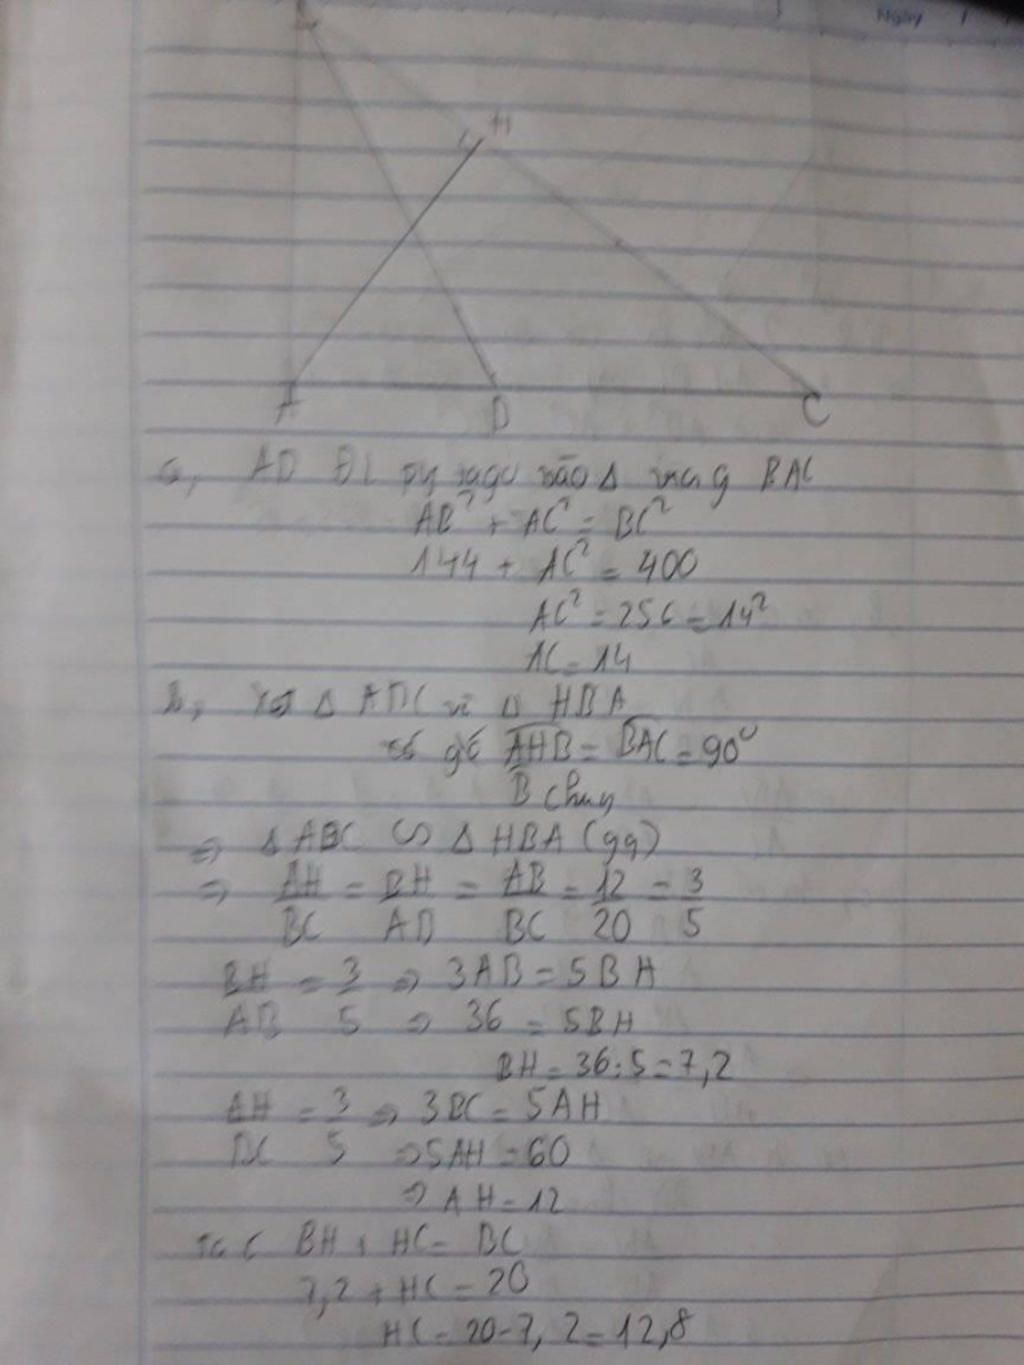 Ngày /
H
A D C
a, AD ĐL py tago vào Δ vuông BAC
AB² + AC² = BC²
144 + AC² = 400
AC² = 256 = 14²
AC = 14
b, Xét Δ ABC và Δ HBA
có góc AHB = BAC = 90°
B chung
=> Δ ABC ∽ Δ HBA (gg)
=> AH/BC = BH/AB = AB/BC = 12/20 = 3/5
BH/AB = 3/5 => 3AB = 5BH
=> 36 = 5BH
BH = 36:5 = 7,2
AH/BC = 3/5 => 3BC = 5AH
=> 5AH = 60
=> AH = 12
BH + HC = BC
7,2 + HC = 20
HC = 20-7,2 = 12,8